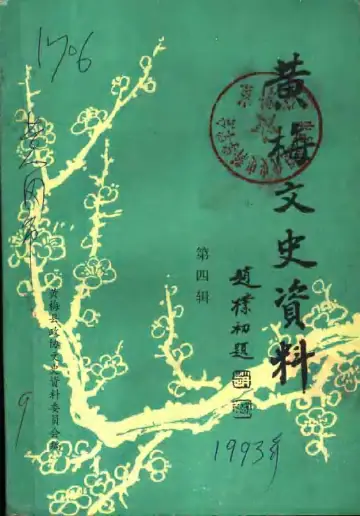 黄梅文史資料
第四辑
趙樸初題
黄梅县政协文史资料委员会编
1706
9
1993年